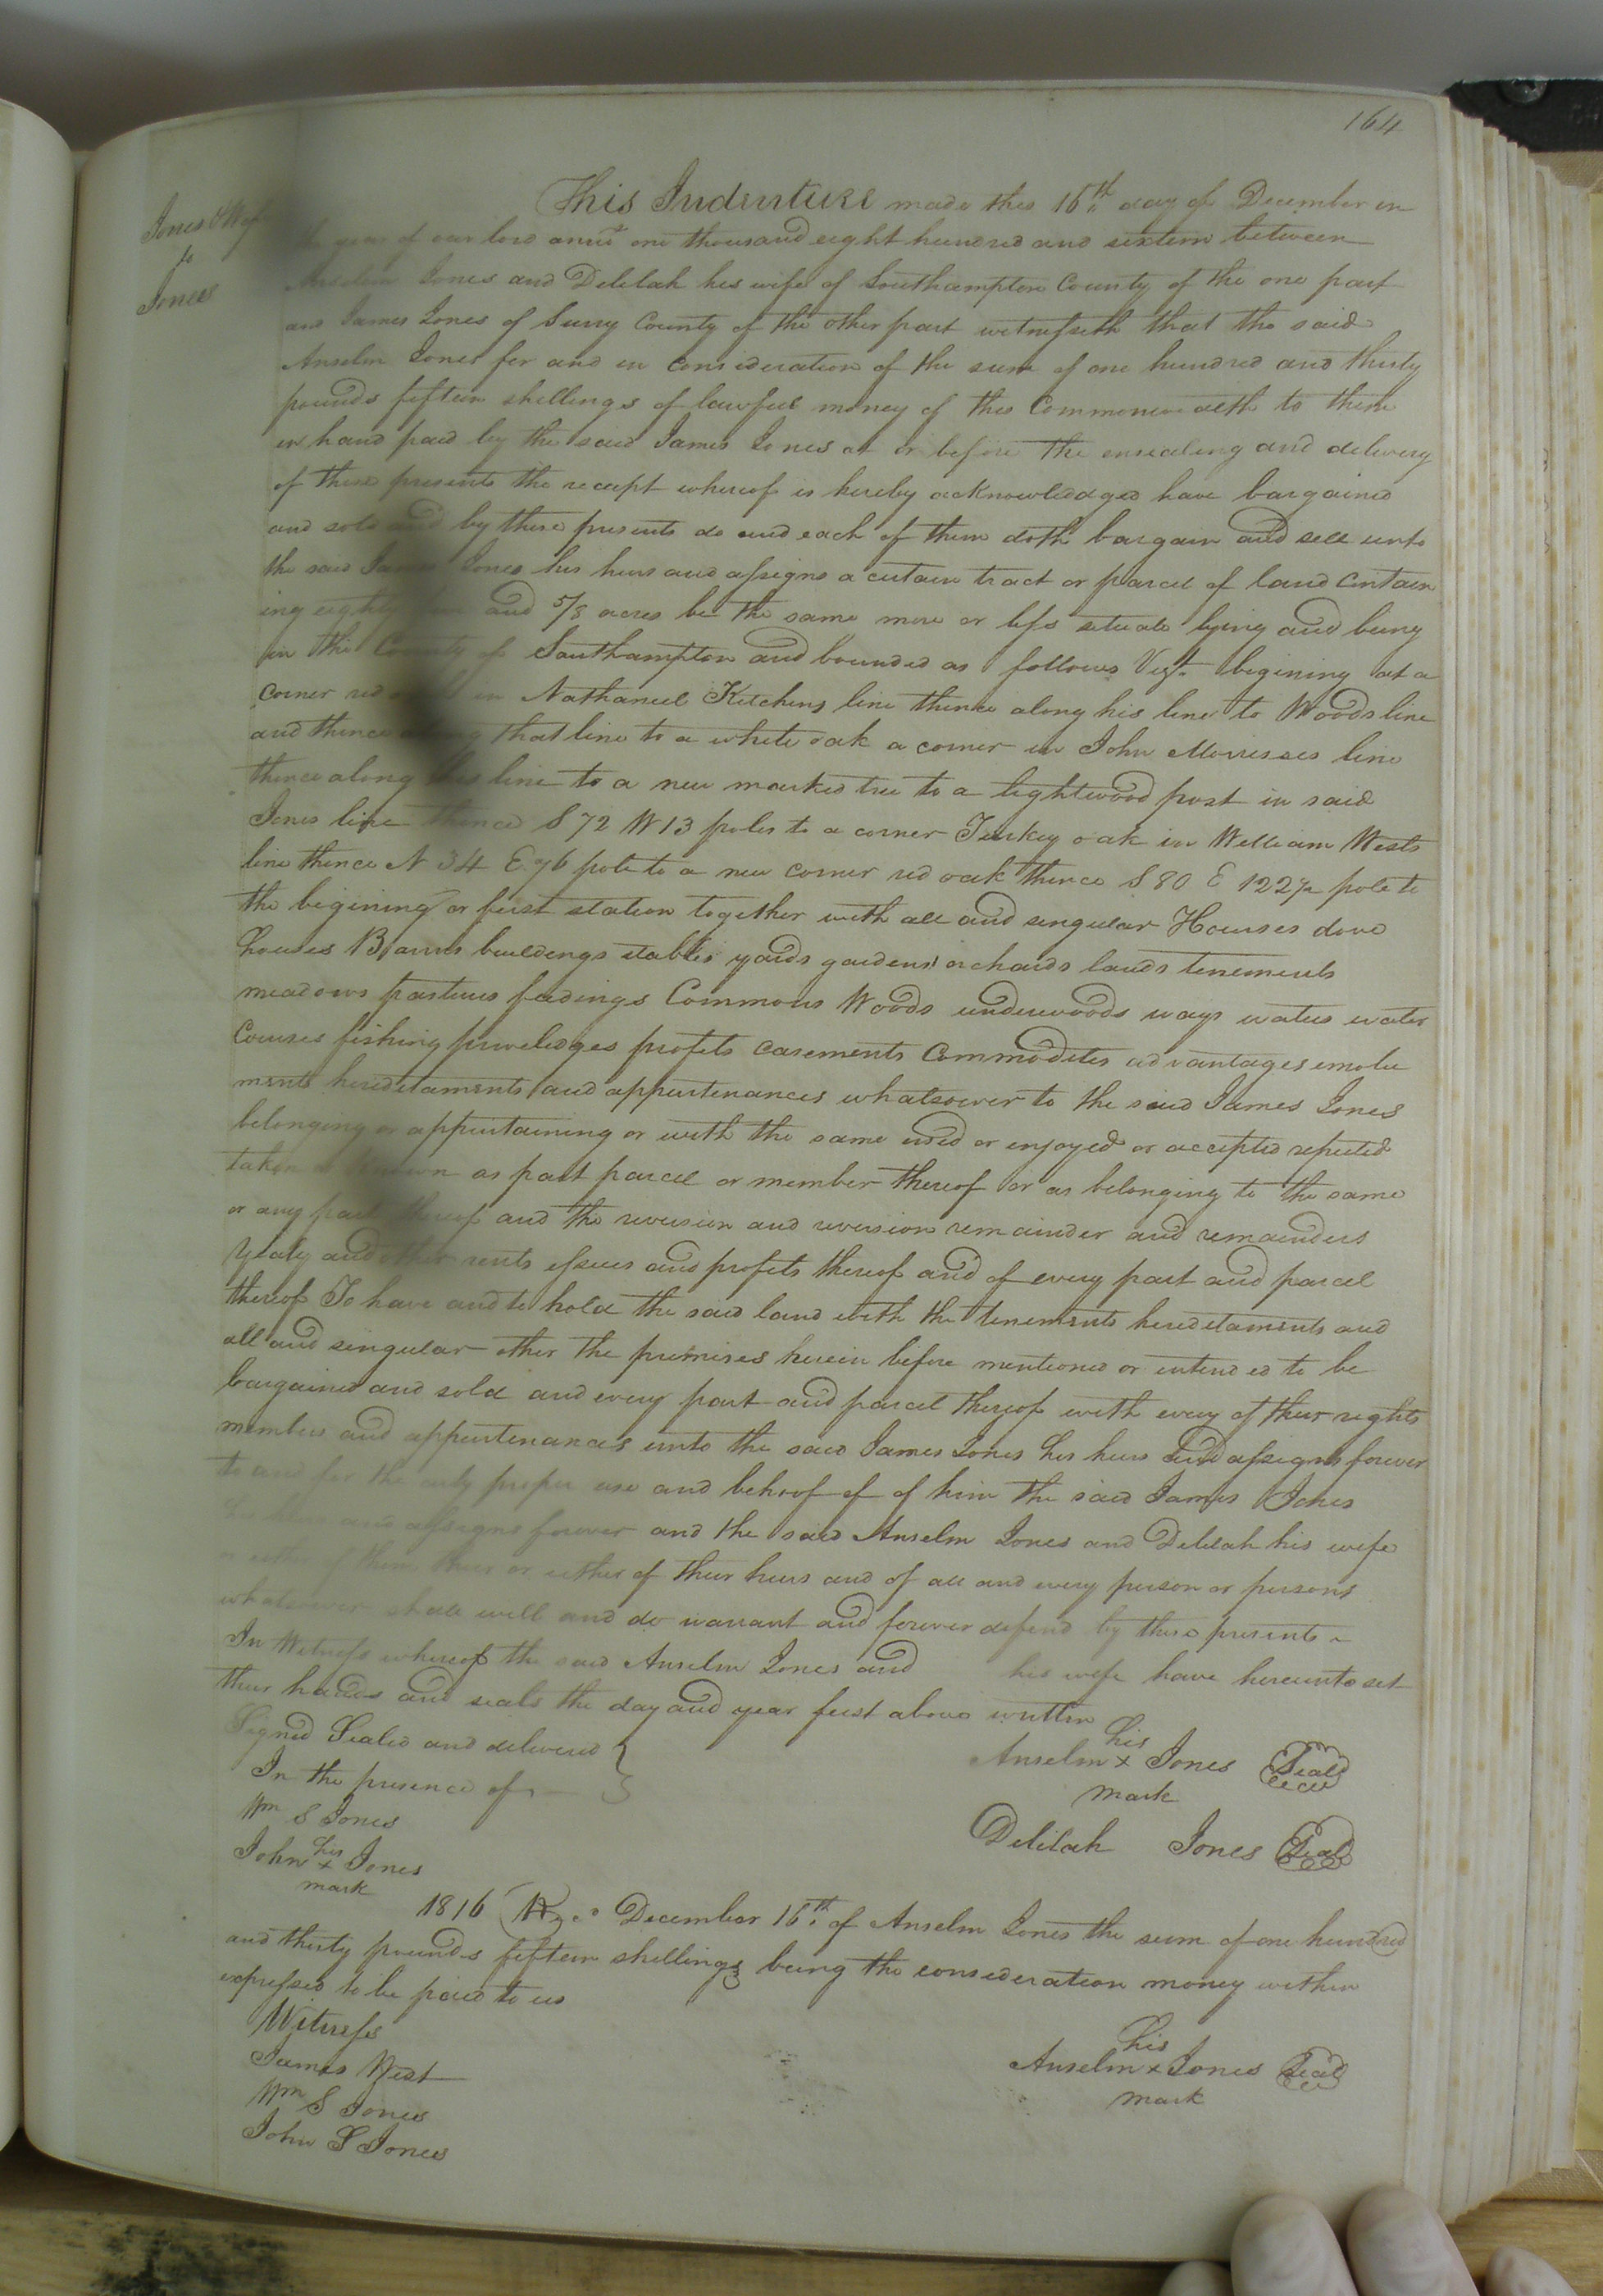 164
Jones & Wife
to
Jones
This Indenture made this 16th day of December in
the year of our lord annd one thousand eight hundred and sixteen between
Anselm Jones and Delilah his wife of Southampton County of the one part
and James Jones of Surry County of the other part witnesseth that the said
Anselm Jones for and in consideration of the sum of one hundred and thirty
pounds fifteen shillings of lawful money of this Commonwealth to them
in hand paid by the said James Jones at or before the ensealing and delivery
of these presents the receipt whereof is hereby acknowledged have bargained
and sold and by these presents do and each of them doth bargain and sell unto
the said James Jones his heirs and assigns a certain tract or parcel of land Contain
ing eighty and 5/8 acres be the same more or less situate lying and being
in the County of Southampton and bounded as follows Vizt. begining at a
corner red oak in Nathaniel Kitchens line thence along his line to Woods line
and thence along that line to a white oak a corner in John Morrisses line
thence along his line to a new marked tree to a lightwood post in said
Jones line thence S 72 W 13 poles to a corner Turkey oak in William Wests
line thence N 34 E 96 pole to a new corner red oak thence S 80 E 122½ pole to
the begining or first station together with all and singular Houses dove
houses Barns buildings stables yards gardens orchards lands tenements
meadows pastures feedings Commons Woods underwoods ways waters water
Courses fishing priveledges profits easements Commodites advantages emolu
ments hereditaments and appurtenances whatsoever to the said James Jones
belonging or appurtaining or with the same used or enjoyed or accepted reputed
taken or known as part parcel or member thereof or as belonging to the same
or any part thereof and the reversion and reversion remainder and remainders
Yealy and other rents issues and profits thereof and of every part and parcel
thereof To have and to hold the said land with the tenements hereditaments and
all and singular other the premises herein before mentioned or intended to be
bargained and sold and every part and parcel thereof with every of their rights
members and appurtenances unto the said James Jones his heirs and assigns forever
to and for the only proper use and behoof of of him the said James Jones
his heirs and assigns forever and the said Anselm Jones and Delilah his wife
or either of them their or either of their heirs and of all and every person or persons
whatsoever shall will and do warrant and forever defend by these presents
In Witness whereof the said Anselm Jones and his wife have hereunto set
their hands and seals the day and year first above written
Signed Sealed and delivered
In the presence of
Wm S Jones
John his x mark Jones
Anselm his x mark Jones Seal
Delilah Jones Seal
1816 December 16th of Anselm Jones the sum of one hundred
and thirty pounds fifteen shillings being the consideration money within
expressed to be paid to us
Witness
James West
Wm S Jones
John S Jones
Anselm his x mark Jones Seal